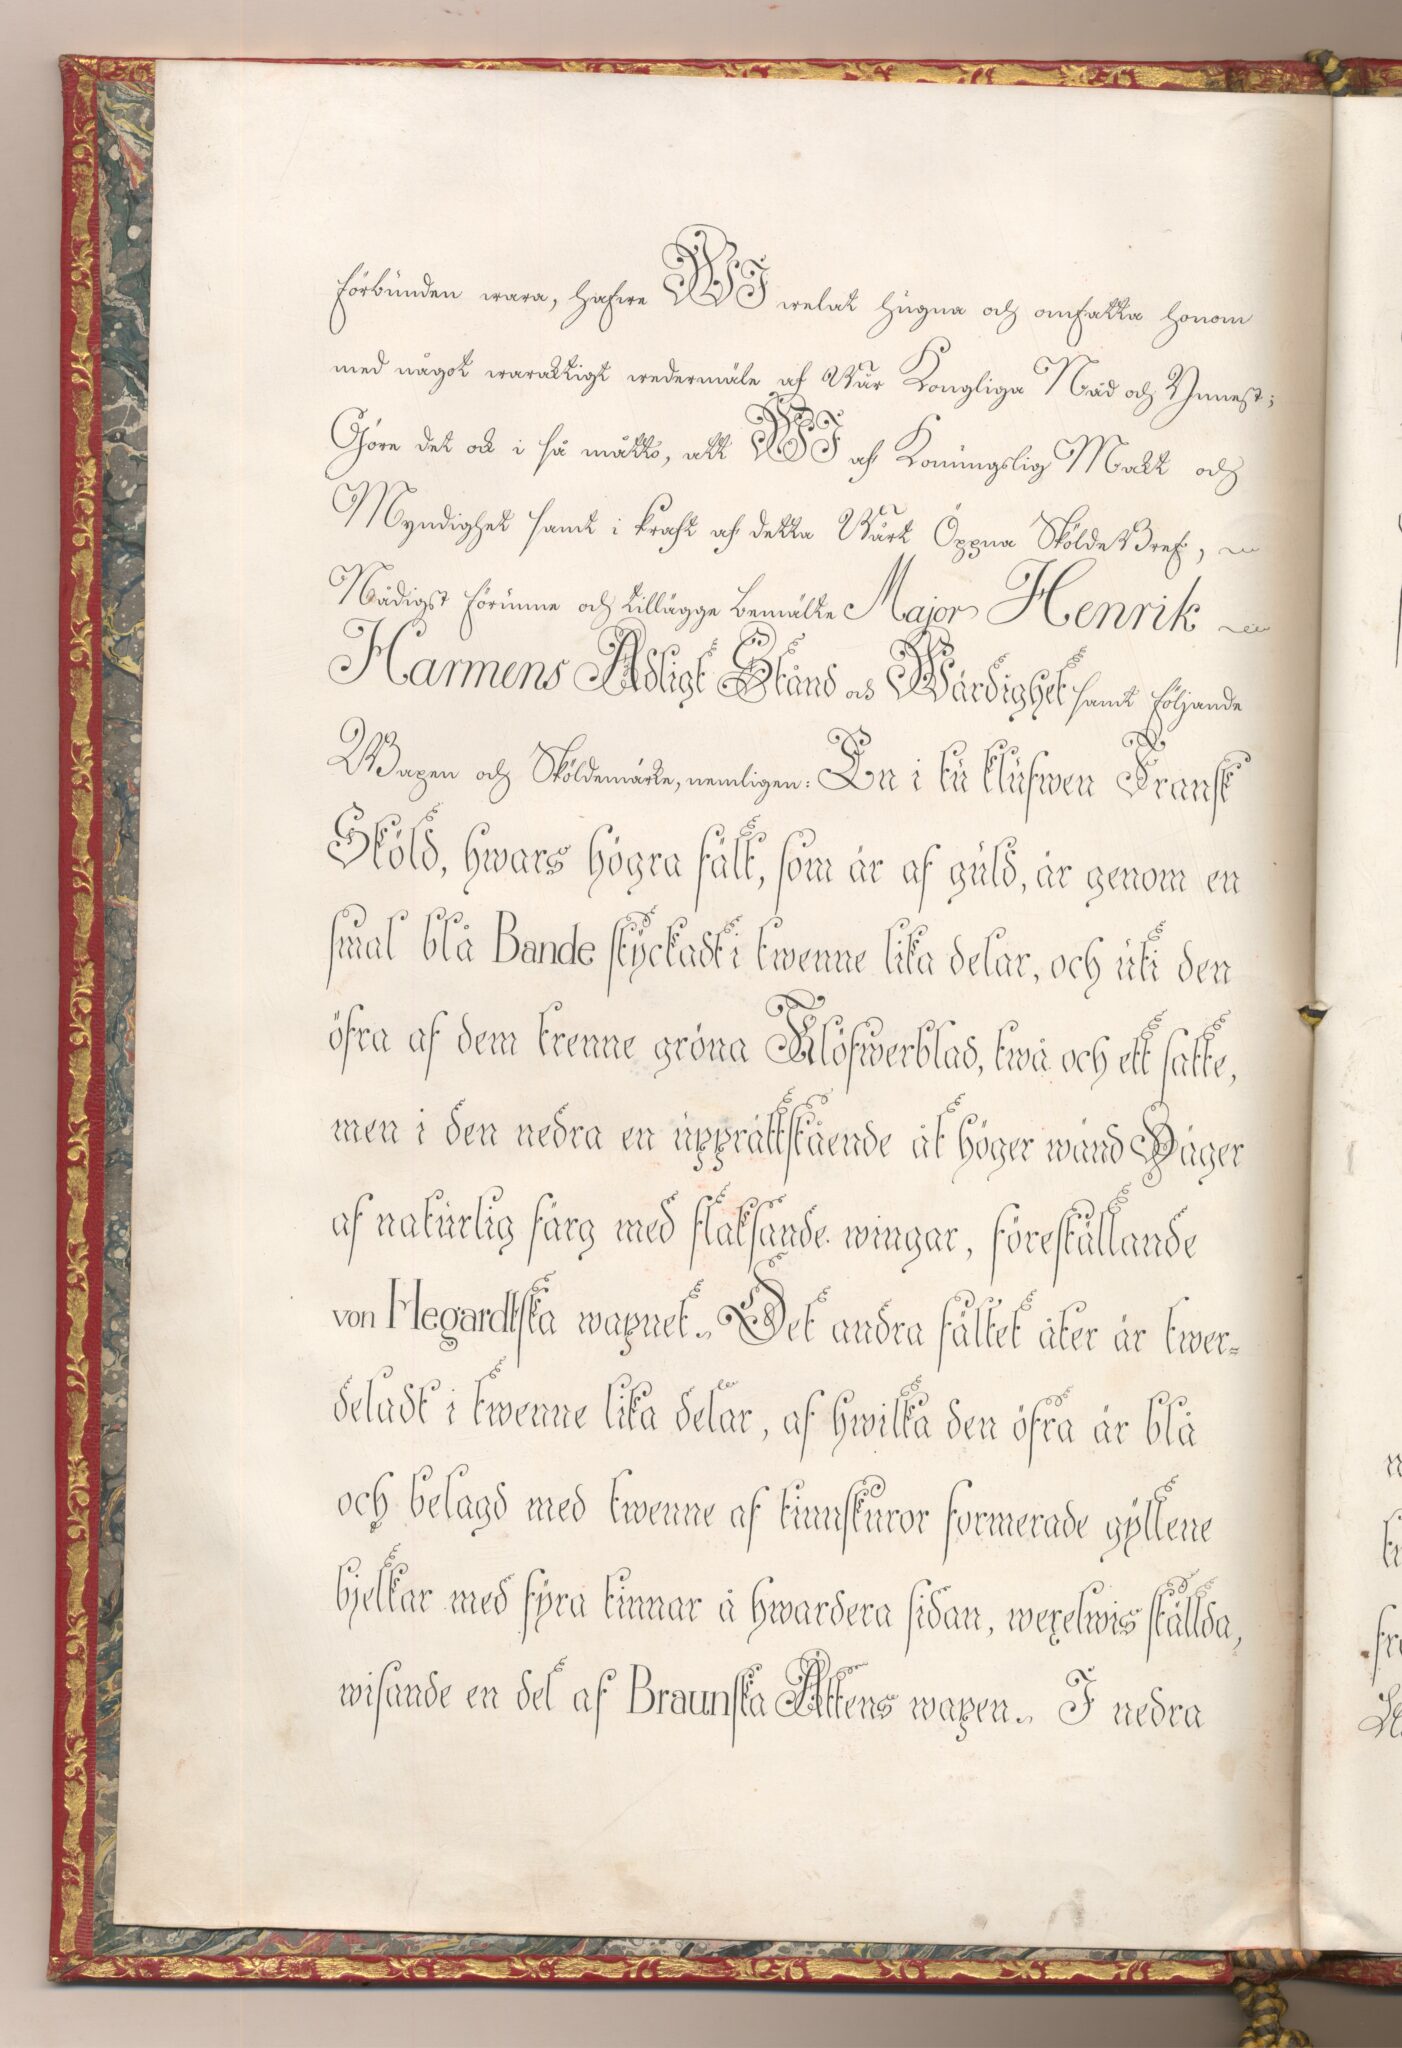 förbunden wara, hafwe WI welat hugna och omfatta honom
med något waraktigt wedermäle af Wår Kongliga Nåd och Ynnest;
Göre det ock i så måtto, att WI af Konungslig Makt och
Myndighet samt i kraft af detta Wårt Öppna SköldeBref,
Nådigst förunne och tillägge bemälte Major Henrik
Harmens Adligt Stånd och Wärdighet samt följande
Wapen och Sköldemärke, nemligen: En i tu klufwen Fransk
Sköld, hwars högra fält, som är af guld, är genom en
smal blå Bande styckadt i twenne lika delar, och uti den
öfra af dem trenne gröna Klöfwerblad, twå och ett satte,
men i den nedra en upprättstående åt höger wänd Häger
af naturlig färg med flaksande wingar, föreställande
von Hegardtska wapnet. Det andra fältet åter är twer=
deladt i twenne lika delar, af hwilka den öfra är blå
och belagd med twenne af tinnskuror formerade gyllene
bjelkar med fyra tinnar å hwardera sidan, wexelwis ställda,
wisande en del af Braunska Ättens wapen. I nedra